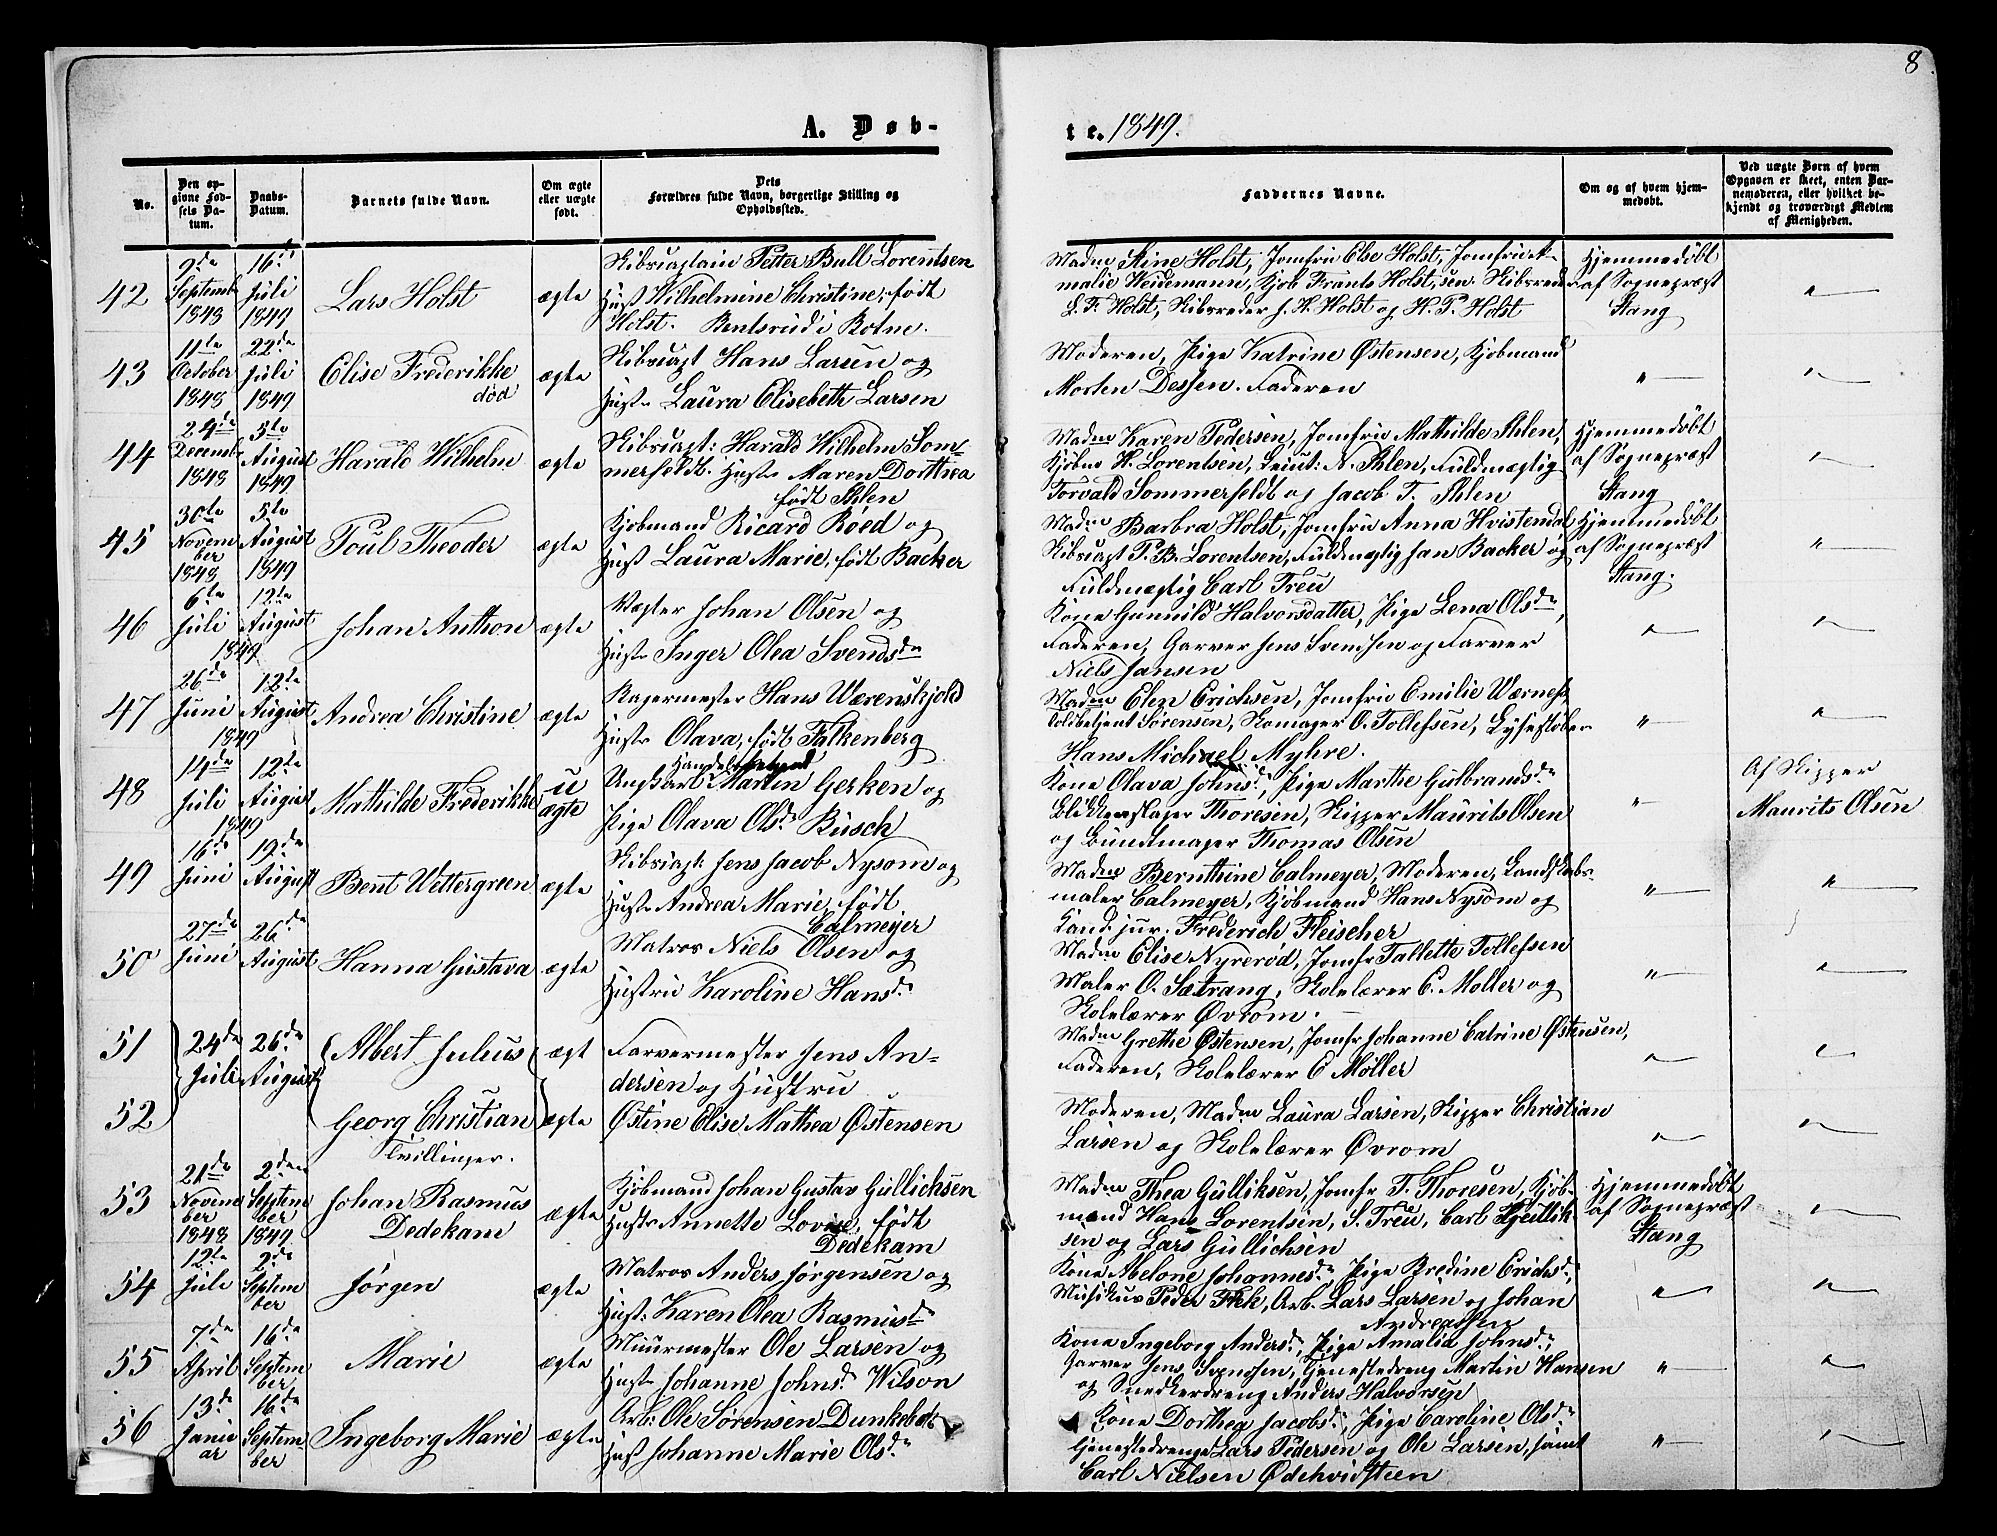 8
A. Døb-
te. 1849.
No.
Den opgivne Fødsels Datum.
Daabs-Datum.
Barnets fulde Navn.
Om ægte eller uægte født.
Dets Forældres fulde Navn, borgerlige Stilling og Opholdssted.
Faddernes Navne.
Om og af hvem hjemmedøbt.
Ved uægte Børn af hvem Opgaven er skeet, enten Barnemoderen, eller hvilket bekjendt og troværdigt Medlem af Menigheden.
42
9de Septemb 1848
16de Juli 1849
Lars Holst
ægte
Skibscaptain Petter Bull Lorentsen
Hust Wilhelmine Christine, født
Holst. Bentsrud i Botne.
Madm Stine Holst, Jomfru Else Holst, Jomfru A-
malie Heidemann, Kjøb Frants Holst, sen. Skibsreder
L. F. Holst, Skibsreder J. H. Holst og H. P. Holst
Hjemmedøbt
af Sognepræst
Stang
"
43
11te October 1848
22de Juli 1849
Elise Frederikke
død
ægte
Skibscapt Hans Larsen og
Hust Laura Elisebeth Larsen
Moderen, Pige Katrine Østensen, Kjøbmand
Morten Dessen. Faderen
"
"
44
24de Decemb 1848
5te August 1849
Harald Wilhelm
ægte
Skibscapt: Harald Wilhelm Som-
merfeldt. Hust Maren Dorthea
født Ihlen
Madm Karen Pedersen, Jomfru Mathilde Ihlen,
Kjøbm H. Lorentsen, Leiut: N. Ihlen, Fuldmægtig
Torvald Sommerfeldt og Jacob T. Ihlen
Hjemmedøbt
af Sognepræst
Stang
"
45
30te November 1848
5te August 1849
Poul Theodor
ægte
Kjøbmand Ricard Røed og
Hust Laura Marie, født Backer
Madm Barbra Holst, Jomfru Anna Hvistendal
Skibscapt P. B. Lorentsen, Fuldmægtig Jan Backer og
Fuldmægtig Carl Treu
Hjemmedøbt
af Sognepræst
Stang.
"
46
6te Juli
12te August
1849
Johan Anthon
ægte
Vægter Johan Olsen og
Hust Inger Olea Svendsdr
Kone Gunnild Halvorsdatter, Pige Lena Olsdr,
Faderen, Garver Jens Svendsen og Farver
Niels Jansen
"
"
47
26de Juni
12te August
1849
Andrea Christine
ægte
Bagermester Hans Wærenskjold
Hust Olava, født Falkenberg
Madm Elen Erichsen, Jomfru Emilie Wærness,
Toldbetjent Sørensen, Skomager O. Tollefsen, Lysestøber
Hans Michael Myhre.
"
"
48
14de Juli
12te August
1849
Mathilde Frederikke
u
ægte
Ungkarl Martin Gerken og
Pige Olava Olsdr Busch
Kone Olava Johnsdr, Pige Marthe Gulbrandsdr
Blikkenslager Thoresen, Skipper Maurits Olsen
og Bundtmager Thomas Olsen
"
Af Skipper
Maurits Olsen
49
16de Juni
19de August
Bent Wettergreen
ægte
Skibscapt: Jens Jacob Nysom og
Hust Andrea Marie, født
Calmeyer
Madm Bernthine Calmeyer, Moderen, Landskabs-
maler Calmeyer, Kjøbmand Hans Nysom og
Cand. jur. Frederich Fleischer
"
"
50
27de Juni
26de August
Hanna Gustava
ægte
Matros Niels Olsen og
Hustru Karoline Hansdr
Madm Elise Nyrerød, Jomfr Tallette Tollefsen
Maler O. Sætrang, Skolelærer C. Møller og
Skolelærer Øvrom.
"
"
51
24de Juli
26de August
Albert Julius
ægt
Farvermester Jens An-
dersen og Hustru
Madm Grethe Østensen, Jomfr Johanne Catrine Østensen,
Faderen, Skolelærer C Møller
"
"
52
Georg Christian
Tvillinger.
ægte
Østine Elise Mathea Østensen
Moderen, Madm Laura Larsen, Skipper Christian
Larsen og Skolelærer Øvrom
"
"
53
21de November 1848
2den September 1849
Johan Rasmus
Dedekam
ægte
Kjøbmand Johan Gustav Gullichsen
Hust Annette Lovise, født
Dedekam
Madm Thea Gulliksen, Jomfr T. Thoresen, Kjøb-
mand Hans Lorentsen, S. Treu, Carl Gullik-
sen og Lars Gullichsen
Hjemmedøbt
af Sognepræst
Stang
"
54
12te Juli
2de September
Jørgen
ægte
Matros Anders Jørgensen og
Hust: Karen Olea Rasmusdr
Kone Abelone Johannesdr, Pige Bredine Erichsdr,
Musikus Peder Fæk, Arb. Lars Larsen og Johan
Andreassen
"
"
55
7de April
16de September
Marie
ægte
Muurmester Ole Larsen og
Hust Johanne Johnsdr Wilson
Kone Ingeborg Andersdr, Pige Amalia Johnsdr,
Garver Jens Svendsen, Tjenestedreng Martin Hansen
og Snedkerdreng Anders Halvorsen
"
"
56
13de Januar
16de September
Ingeborg Marie
ægte
Arb: Ole Sørensen Dunkebek
Hust Johanne Marie Olsdr
Kone Dorthea Jacobsdr, Pige Caroline Olsdr
Tjenestedrenge Lars Pedersen og Ole Larsen, samt
Carl Nielsen Ødehvidsteen
"
"